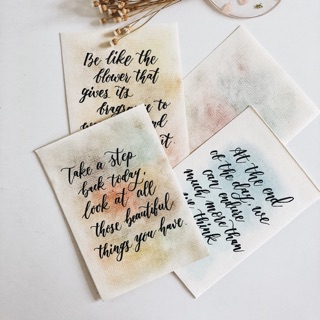 Be like the
flower that
gives its
fragrance to
Take a step
back today,
look at all
those beautiful
things you have
At the end
of the day, we
can endure
much more than
we think